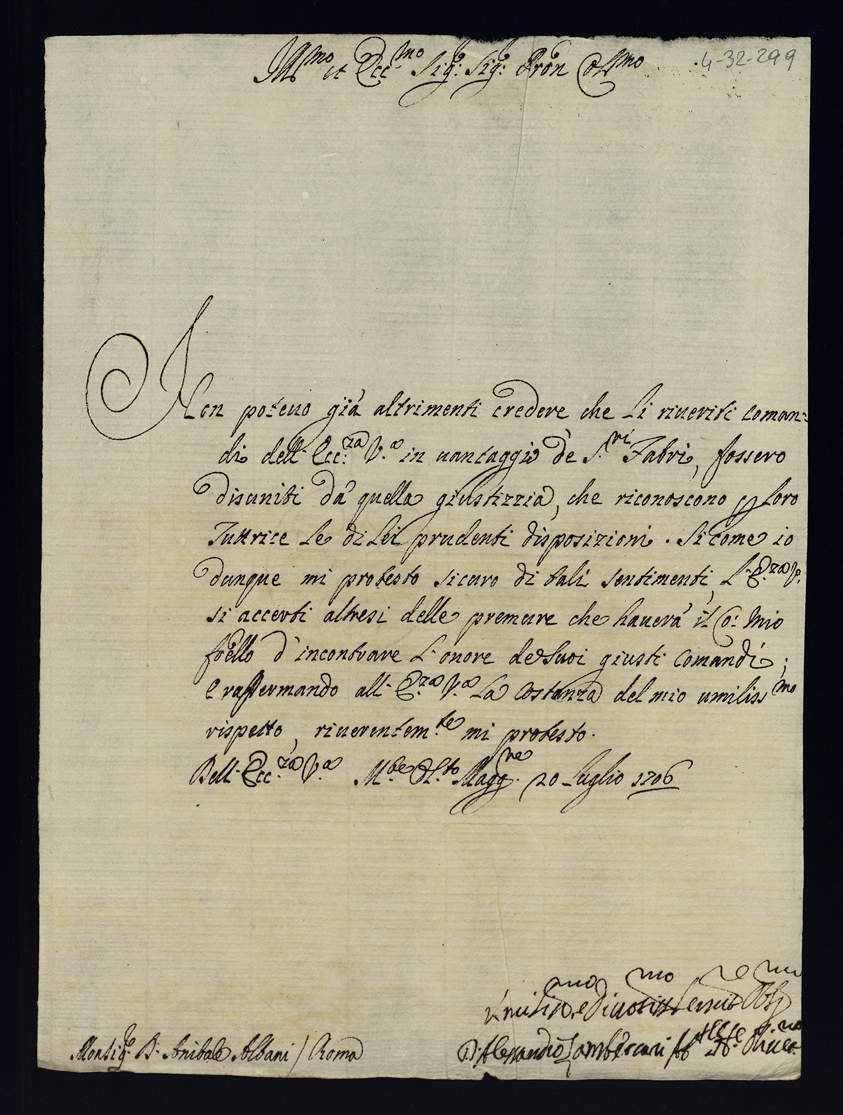 Ill.mo et Ecc.mo Sig.r Sig.r Pron Col.mo
4-32-299
Non poteuo già altrimenti credere che li riueriti coman-
di dell' Ecc.za V.a in uantaggio de S.ri Fabri, fossero
disuniti da quella giustizzia, che riconoscono p loro
Tuttrice le di lei prudenti disposizioni. Si come io
dunque mi protesto sicuro di tali sentimenti, L' E.za V.
si accerti altresi delle premure che hauerà il Co: mio
fr̃ello d'incontrare l'onore de suoi giusti comandi;
e raffermando all' E.za V.a la costanza del mio umiliss.mo
rispetto, riuerentem.te mi protesto.
Dell' Ecc.za V.a M.te Magg.re 20 Luglio 1706
Diuotiss.mo
D. Alessandro Zambeccari
Monsig.r D. Anibale Albani / Roma